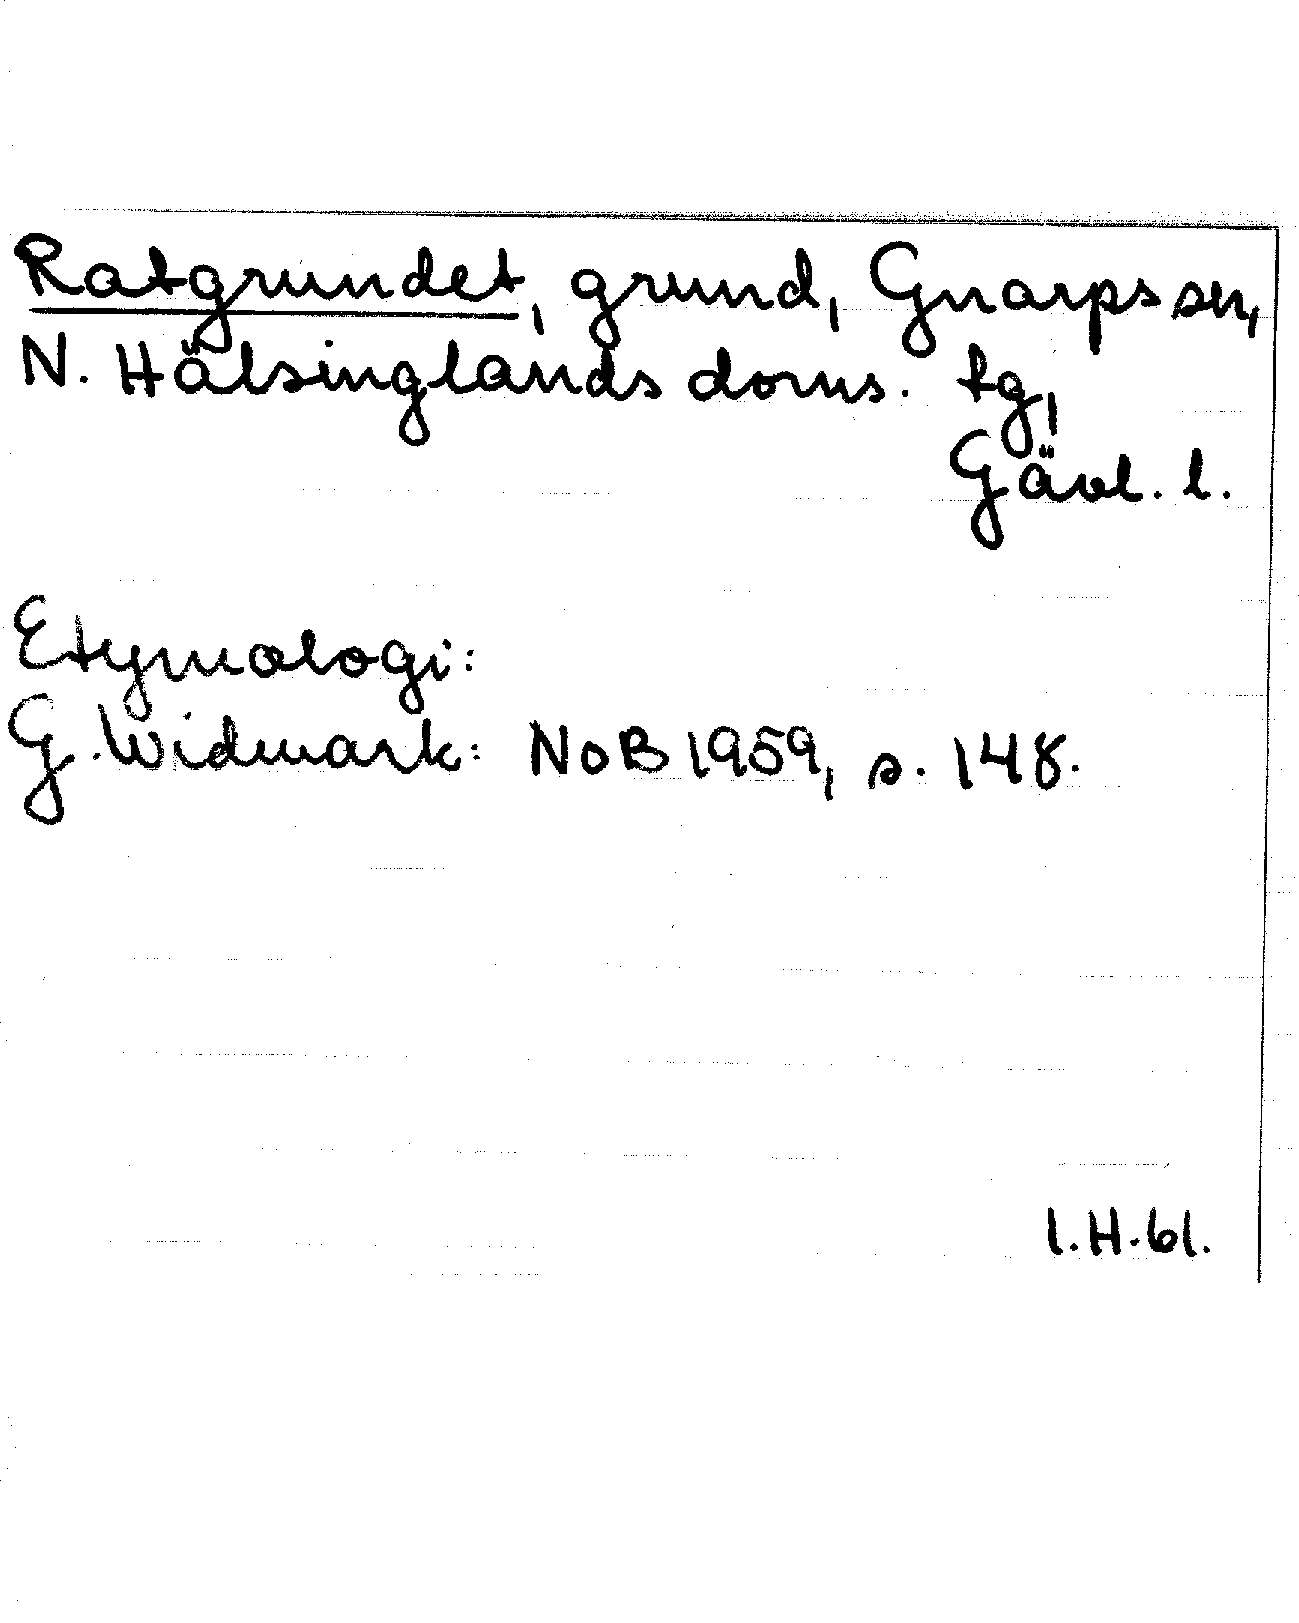 Ratgrundet, grund, Gnarps sn,
N. Hälsinglands doms. tg,
Gävl. l.
Etymologi:
G. Widmark: NoB 1959, s. 148.
I.H. 61.